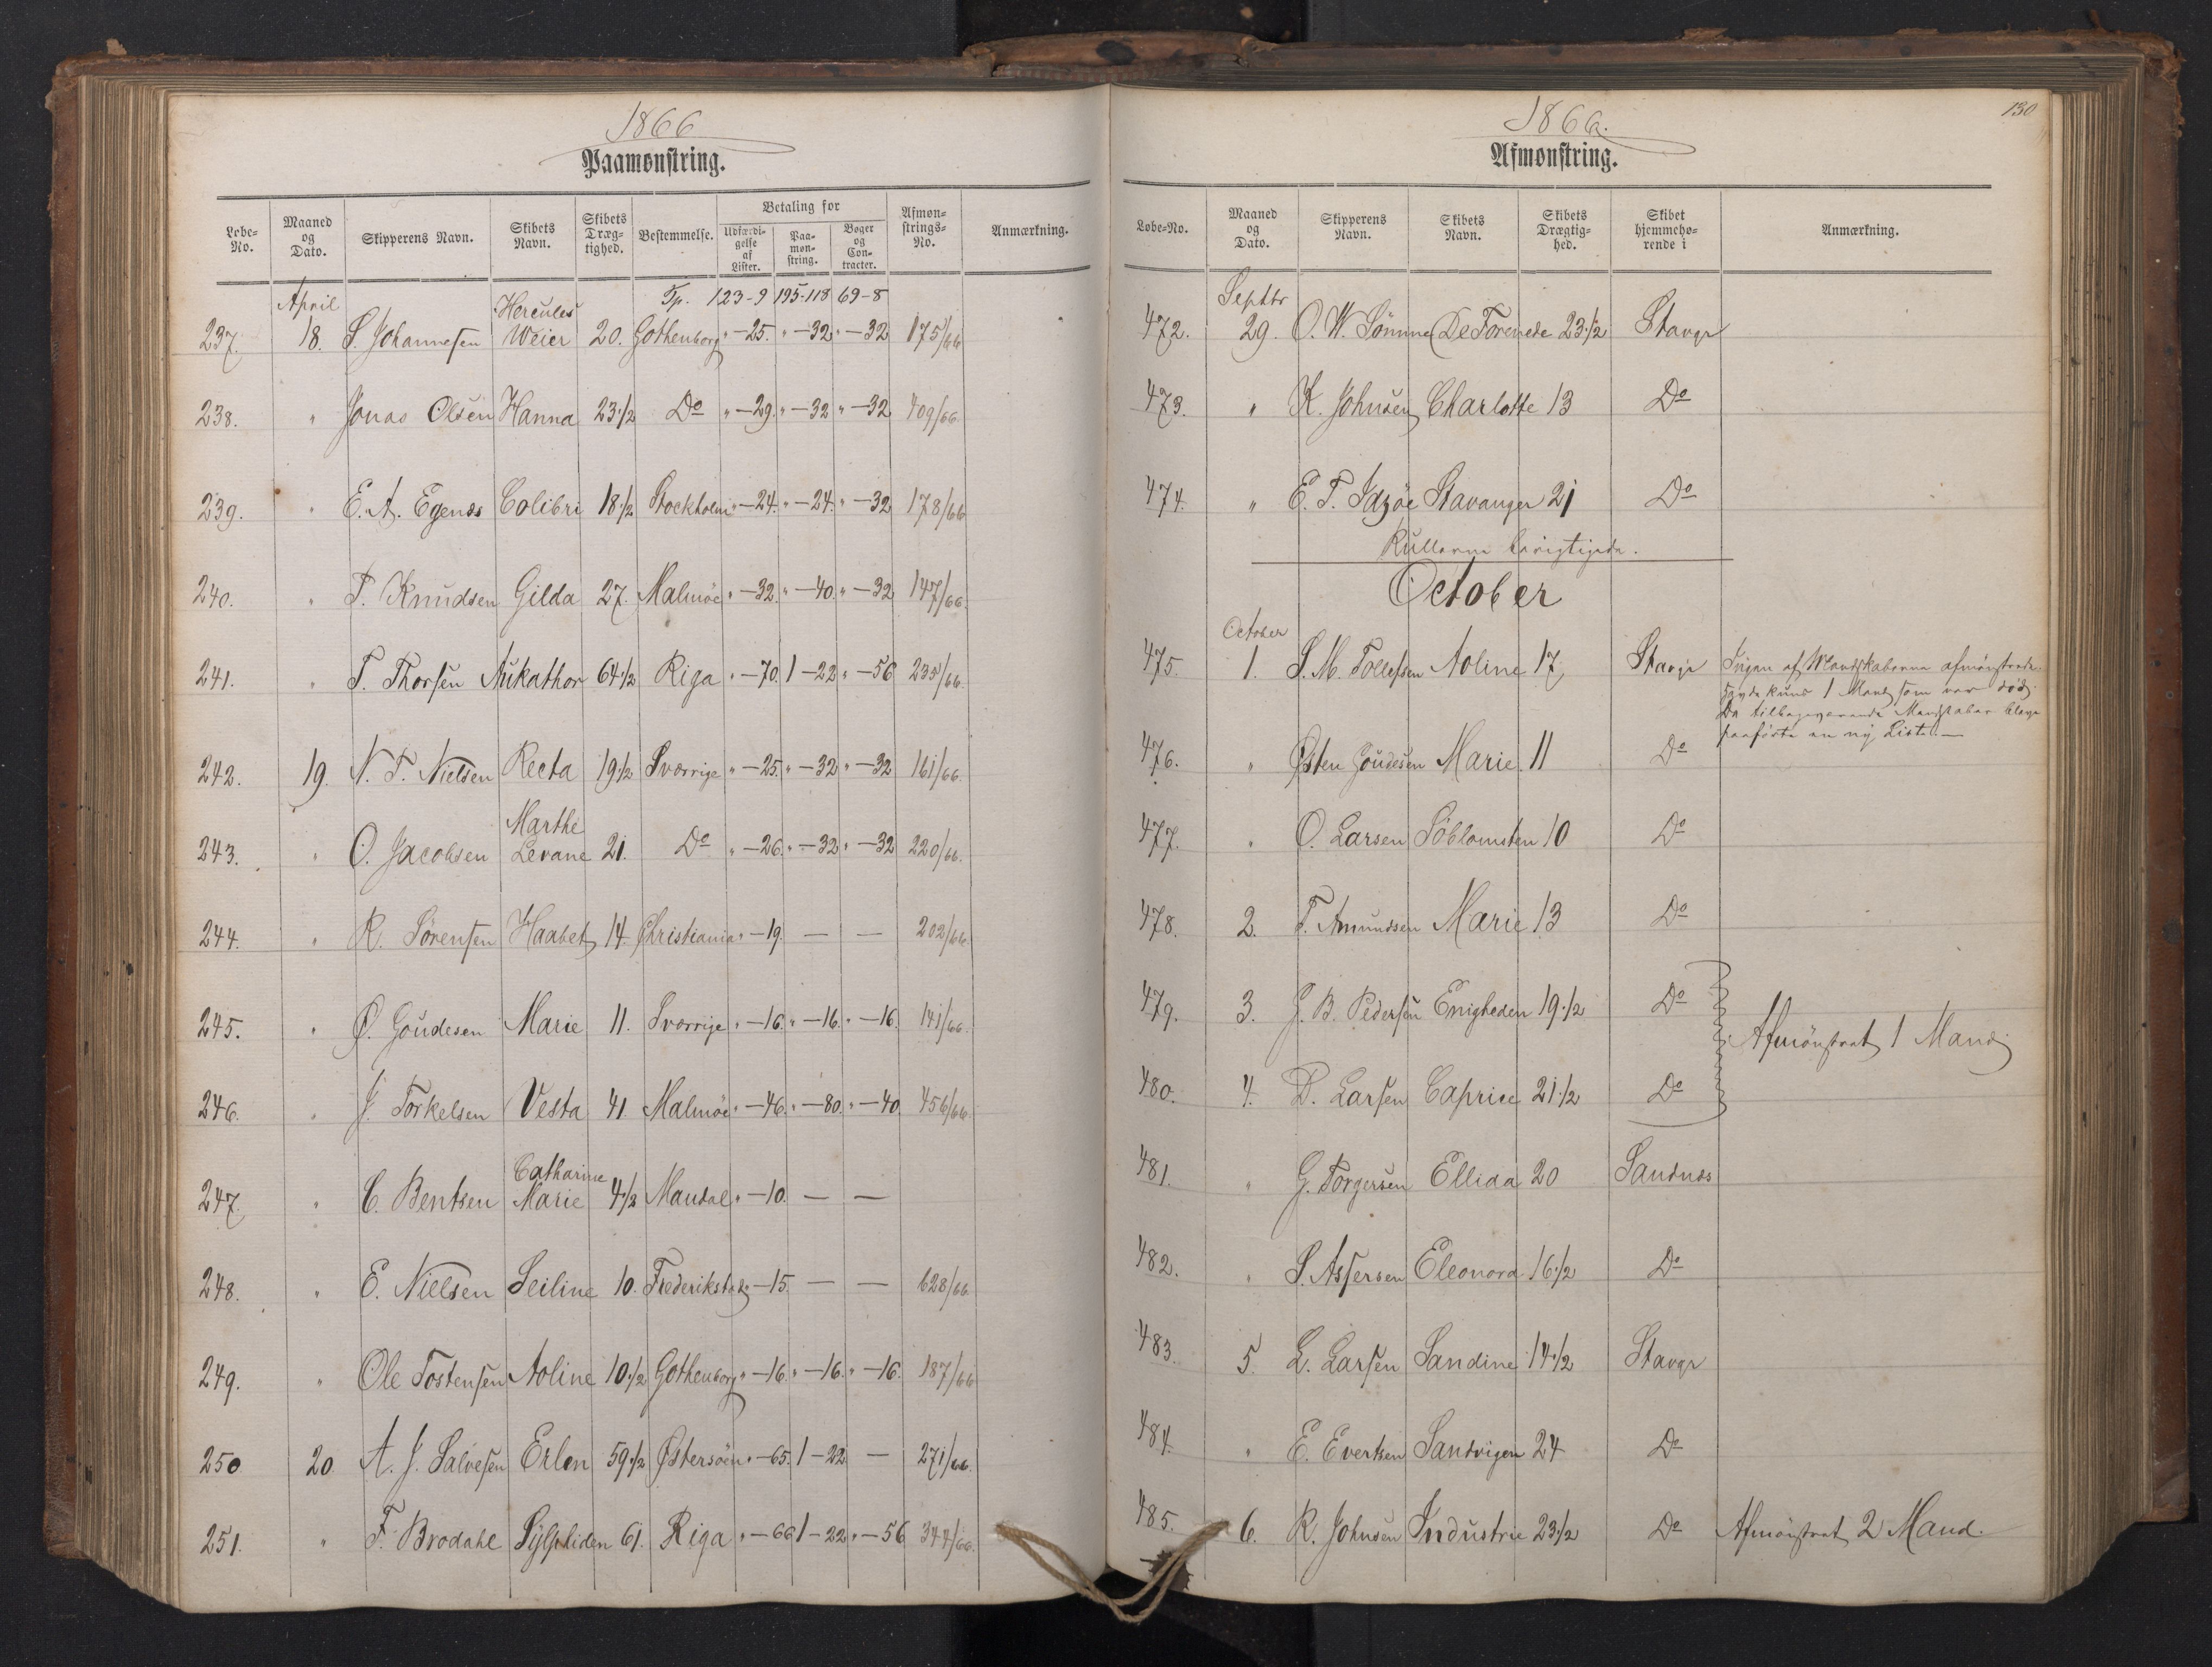 1866
Paamønstring.
Løbe-No. Maaned og Dato. Skipperens Navn. Skibets Navn. Skibets Dræg-tighed. Bestemmelse. Betaling for Udfærdi-gelse af Lister. Paa-møn-string. Bøger og Con-tracter. Afmøn-strings-No. Anmærkning.
Tp. 123-9 195-118 69-8
237. April 18. S. Johannesen Hercules Weier 20. Gothenborg " -25. " -32 " -32 175/66
238. " Jonas Olsen Hanna 23 1/2 Do " -29. " -32 " -32 409/66.
239. " E. A. Egenæs Colibri 18 1/2 Stockholm " -24. " -24. " -32 178/66
240. " T. Knudsen Gilda 27. Malmöe " -32. " -40. " -32 147/66.
241. " T. Thorsen Aukathor 64 1/2 Riga " -70. 1 -22 " -56 235/66.
242. 19. N. T. Nielsen Recta 19 1/2 Sverrige " -25. " -32 " -32 161/66.
243. " O. Jacobsen Marthe Levane 21. Do " -26. " -32 " -32 220/66.
244. " R. Sörensen Haabet 14 Christiania " -19. — — 202/66
245. " Ø. Goudesen Marie 11. Sverrige " -16. " -16. " -16. 141/66.
246. " J. Torkelsen Vesta 41 Malmöe " -46. " -80. " -40 456/66.
247. " C. Bentsen Catharine Marie 4 1/2 Mandal " -10. — —
248. " E. Nielsen Seiline 10. Frederikstad " -15. — — 628/66
249. " Ole Tostensen Aoline 10 1/2 Gothenborg " -16. " -16. " -16. 187/66
250 20 A. J. Salvesen Erlen 59 1/2 Østersöen " -65. 1 -22 — 271/66.
251. " F. Brodahl Sylphiden 61. Riga " -66 1 -22 " -56 344/66.
130
1866.
Afmønstring.
Løbe-No. Maaned og Dato. Skipperens Navn. Skibets Navn. Skibets Drægtig-hed. Skibet hjemmehø-rende i Anmærkning.
472. Septbr 29. O. W. Sömme De Forenede 23 1/2 Stavgr
473. " K. Johnsen Charlotte 13 Do
474. " E. T. Idsöe Stavanger 21 Do
Rullerne berigtigede.
October
475. October 1. S. M. Tollefsen Aoline 17 Stavgr Ingen af Mandskaberne afmönstrede
kuns 1 Mand som var död.
De tilbageværende Mandskaber bleve
paaförte en ny Liste. —
476. " Østen Goudesen Marie 11 Do
477. " O. Larsen Söblomsten 10 Do
478. 2. T. Amundsen Marie 13 Do
479. 3. J. B. Pedersen Enigheden 19 1/2 Do
Afmönstret 1 Mand
480. 4. D. Larsen Caprice 21 1/2 Do
481. " G. Torgersen Ellida 20 Sandnæs
482. " S. Assersen Eleonora 16 1/2 Do
483. 5. L. Larsen Sandine 14 1/2 Stavgr
484. " E. Evertsen Sandvigen 24 Do
485. 6. R. Johnsen Industrie 23 1/2 Do Afmönstret 2 Mand.